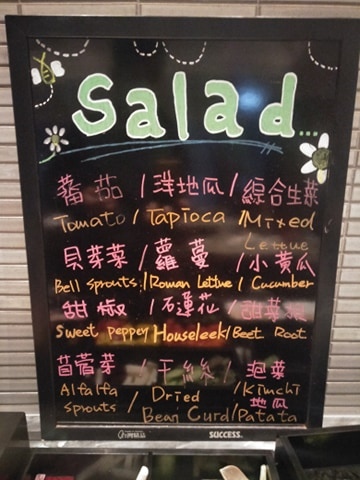 Salad...
蕃茄/洋地瓜/綜合生菜
Tomato/Tapioca/Mixed
Lettue
貝芽菜/蘿蔓/小黃瓜
Bell sprouts/Roman Lettue/Cucumber
甜椒/石蓮花/甜菜根
Sweet pepper/Houseleek/Beet Root
苜蓿芽/干絲/泡菜
Alfalfa/Dried/Kimchi
地瓜
sprouts Bean Curd/Patata
SUCCESS